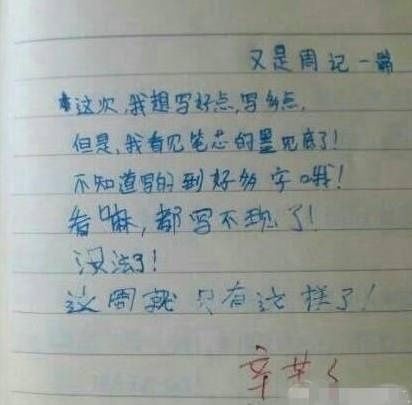 又是周记一篇
这次,我想写好点,写多点,
但是,我看见笔芯的墨见底了!
不知道写的到好多字哦!
看嘛,都写不现了!
没法了!
这周就只有这样了!
辛苦